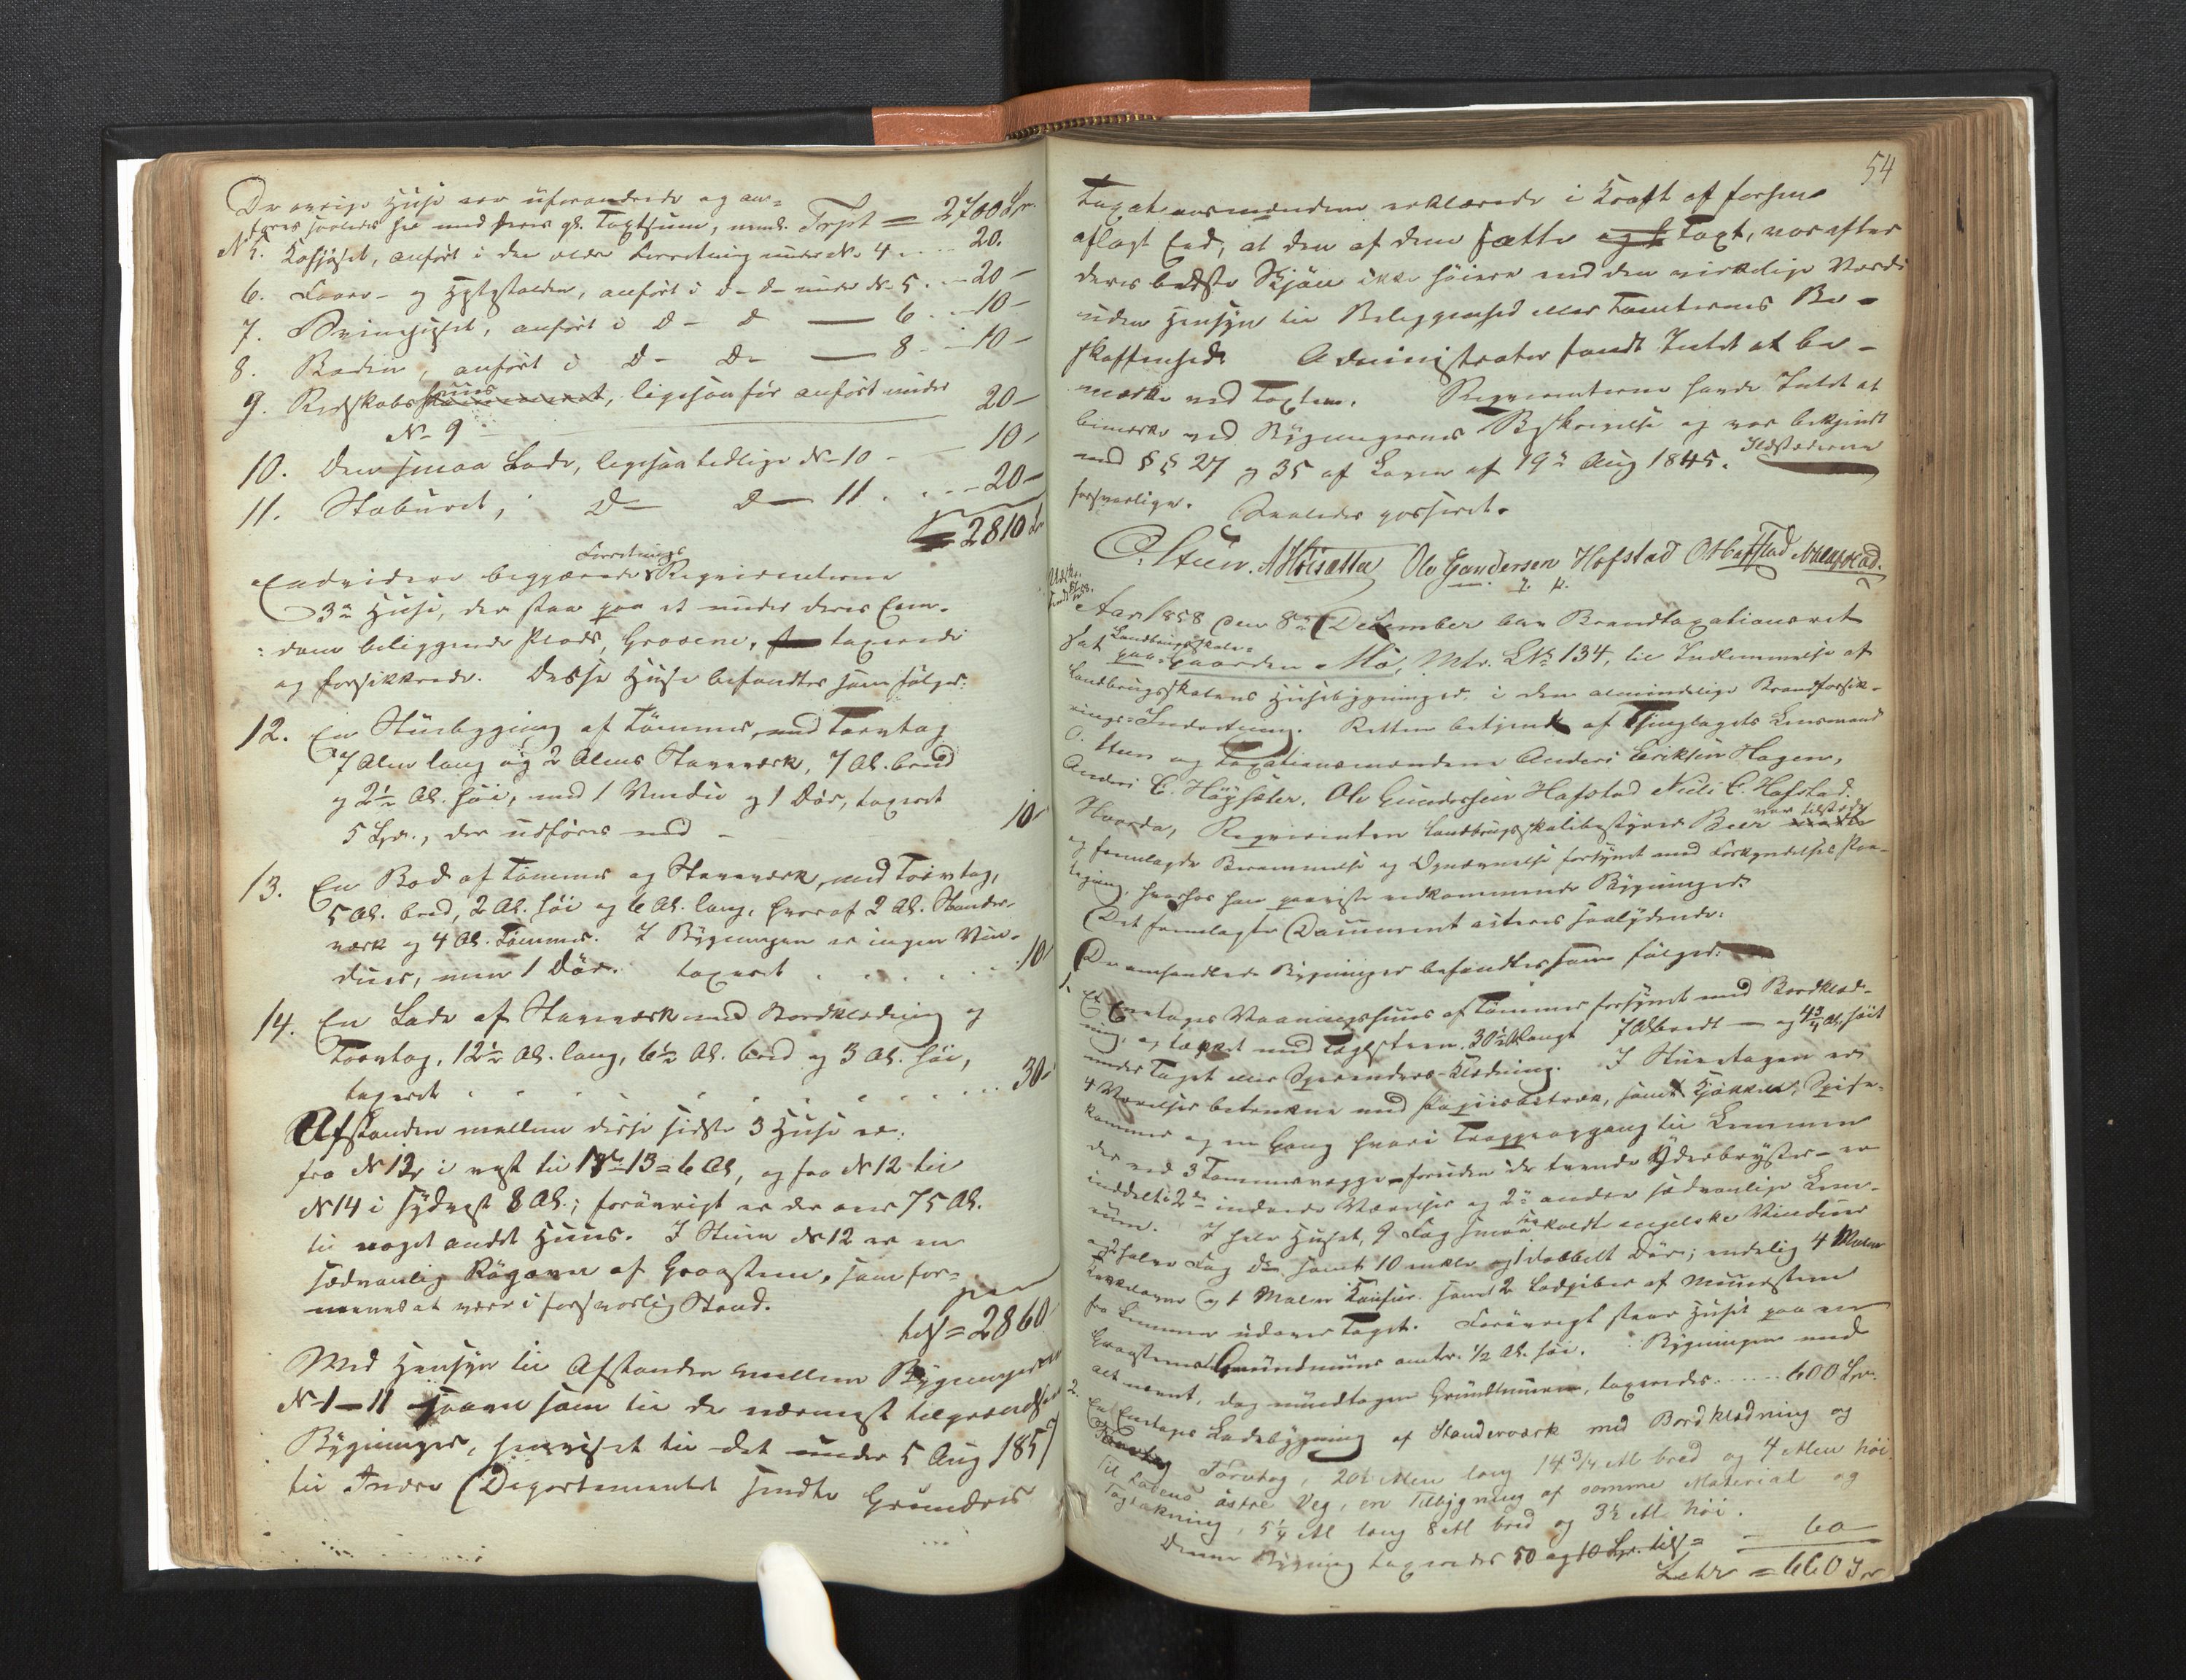 De øvrige Huse ere uforandrede og an-
føres saaledes her med deres gl. Taxtsum, neml. Trspt = 2700 Spr.
N 5. Kohuset, anført i den ældre Forretning under N. 4 . . 20.
6. Foure- og Hestestalden, anført i D- D- under N 5 . - 20 -
7. Svinehuset, anført i D- d — 6 . . 10 -
8. Boden, anført i D- D- — 8 - 10 -
9. Redskabshuus, ligesaa før anført under
N- 9 20 -
10. Den smaa Lade, ligesaa tidlige N- 10 - - 10 -
11. Staburet, i D- D- 11 . . . - 20 -
= 2810 Spr
Endvidere begjærede Forretnings Reqvirenterne
3de Huse, der staa paa et under deres Eien-
dom beliggende Plads, Groserne, taxerede
og forsikkrede. Disse Huse befandtes som følger:
12. En Stuebygning af Tømmer, med Torvtag
7 Alen lang og 2 Alens Staveværk, 7 Al. bred
og 2½ Al. høi, med 1 Vindue og 1 Dør, taxeret
5 Spr., der udføres med - 10 -
13. En Bod af Tømmer og Staveværk, med Torvtag,
5 Al. bred, 2 Al. høi og 6 Al. lang, hvoraf 2 Al. Stander-
værk og 4 Al. Tømmer. I Bygningen er ingen Vin-
duer, men 1 Dør. taxeret . . . . . . 10 -
14. En Lade af Staveværk med Bordklædning og
Torvtag, 12½ Al. lang, 6½ Al. bred og 3 Al. høi,
taxeret . . . . . . . . . . . 30 -
Afstanden mellem disse sidste 3 Huse er:
fra N 12 i vest til N 13 = 6 Al, og fra N 12 til
N 14 i sydvest 8 Al.; forøvrigt er der over 75 Al.
til noget andet Huus. I Stuen N 12 er en
sædvanlig Røgovn af Graasteen, som for-
menes at være i forsvarlig Stand.
tils = 2860
Med Hensyn til Afstanden mellem Bygningerne
N- 1 — 11 saavel som til de nærmest tilgrændsende
Bygninger, henvises til det under 5 Aug 1857
til Indre Departementet sendte Grundrids
54
Taxationsmændene erklærede i Kraft af forhen
aflagt Eed, at den af dem satte Taxt, var efter
deres bedste Skjøn ikke høiere end den virkelige Værdi
uden Hensyn til Beliggenhed eller Tomternes Be-
skaffenhed. Administrator fandt Intet at be-
mærke ved Taxten. Reqvirenterne havde Intet at
bemærke ved Bygningernes Beskrivelse og var bekjendt
med §§ 27 og 35 af Loven af 19de Aug 1845. Ildstederne
forsvarlige. Saaledes passeret.
O. Steen. A Høisætter Ole Gundersen Hofstad
m. f. P.
Aar 1858 den 8de December blev Brandtaxationsret
sat paa Landbrugsskole-Gaarden Mo, Mtr. LNr 134, til Indlemmelse af
Landbrugsskolens Huusbygninger i den almindelige Brandforsik-
rings-Indretning. Retten betjent af Thinglagets Lensmand
O. Steen og Taxationsmændene Anders Eriksen Hagen,
Anders E. Høysæter, Ole Gundersen Hofstad Niels C. Hofstad.
Hvorda, Reqvirenten Landbrugsskolebestyrer Beer var tilstede
og fremlagde Berammelse og Opnævnelse forsynet med Forkyndelses Paa-
tegning, hvorhos han paaviste vedkommende Bygninger.
Det fremlagte Document acteres saalydende:
De omhandlede Bygninger befandtes som følger:
1. Et Eenetages Vaaningshuus af Tømmer forsynet med Bordklæd-
ning, og tækket med Taglsteen. 30½ Al langt 7 Al bredt — og 4¾ Al. høit
under Taget eller Sperrenderes-Klædning. I Stueetagen er
4 Værelser betrukne med Papiirbetræk, samt Kjøkken, Spise-
kammer og en Gang hvori Trappeopgang til Lemmen
der ved 3 Tømmervægge - foruden de tvende Yderbryster - er
inddelt i 2de indrede Værelser og 2de andre sædvanlige Lem-
rum. I hele Huset, 9 Fag smaa saakaldte engelske Vinduer
og 2 halve Fag Do samt 10 enkle og 1 dobbelt Dør; endelig 4
Kakkelovne og 1 Maler Komfur samt 2 Ladpiber af Muursteen
fra Lemmen udover Taget. Forøvrigt staar Huset paa en
Graasteens Grundmuur omtr. ½ Al. høi. Bygningen med
alt nævnt, dog undtagen Grundmuren, taxeredes . . . . 600 Spr.
2. En Eenetages Ladebygning af Standerværk med Bordklædning og
Torvtag, 20½ Alen lang 14¾ Al bred og 4 Alen høi
Til Ladens østre Veg, en Tilbygning af samme Material og
Tagtækning, 5¼ Al lang 8 Al bred og 3½ Al høi.
Denne Bygning taxeredes 50 og 10 Spr. tils = - 60
Latr = 660 Spr